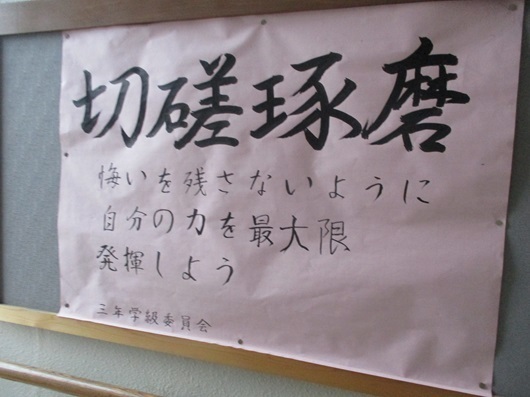 切磋琢磨
悔いを残さないように
自分の力を最大限
発揮しよう
三年学級委員会